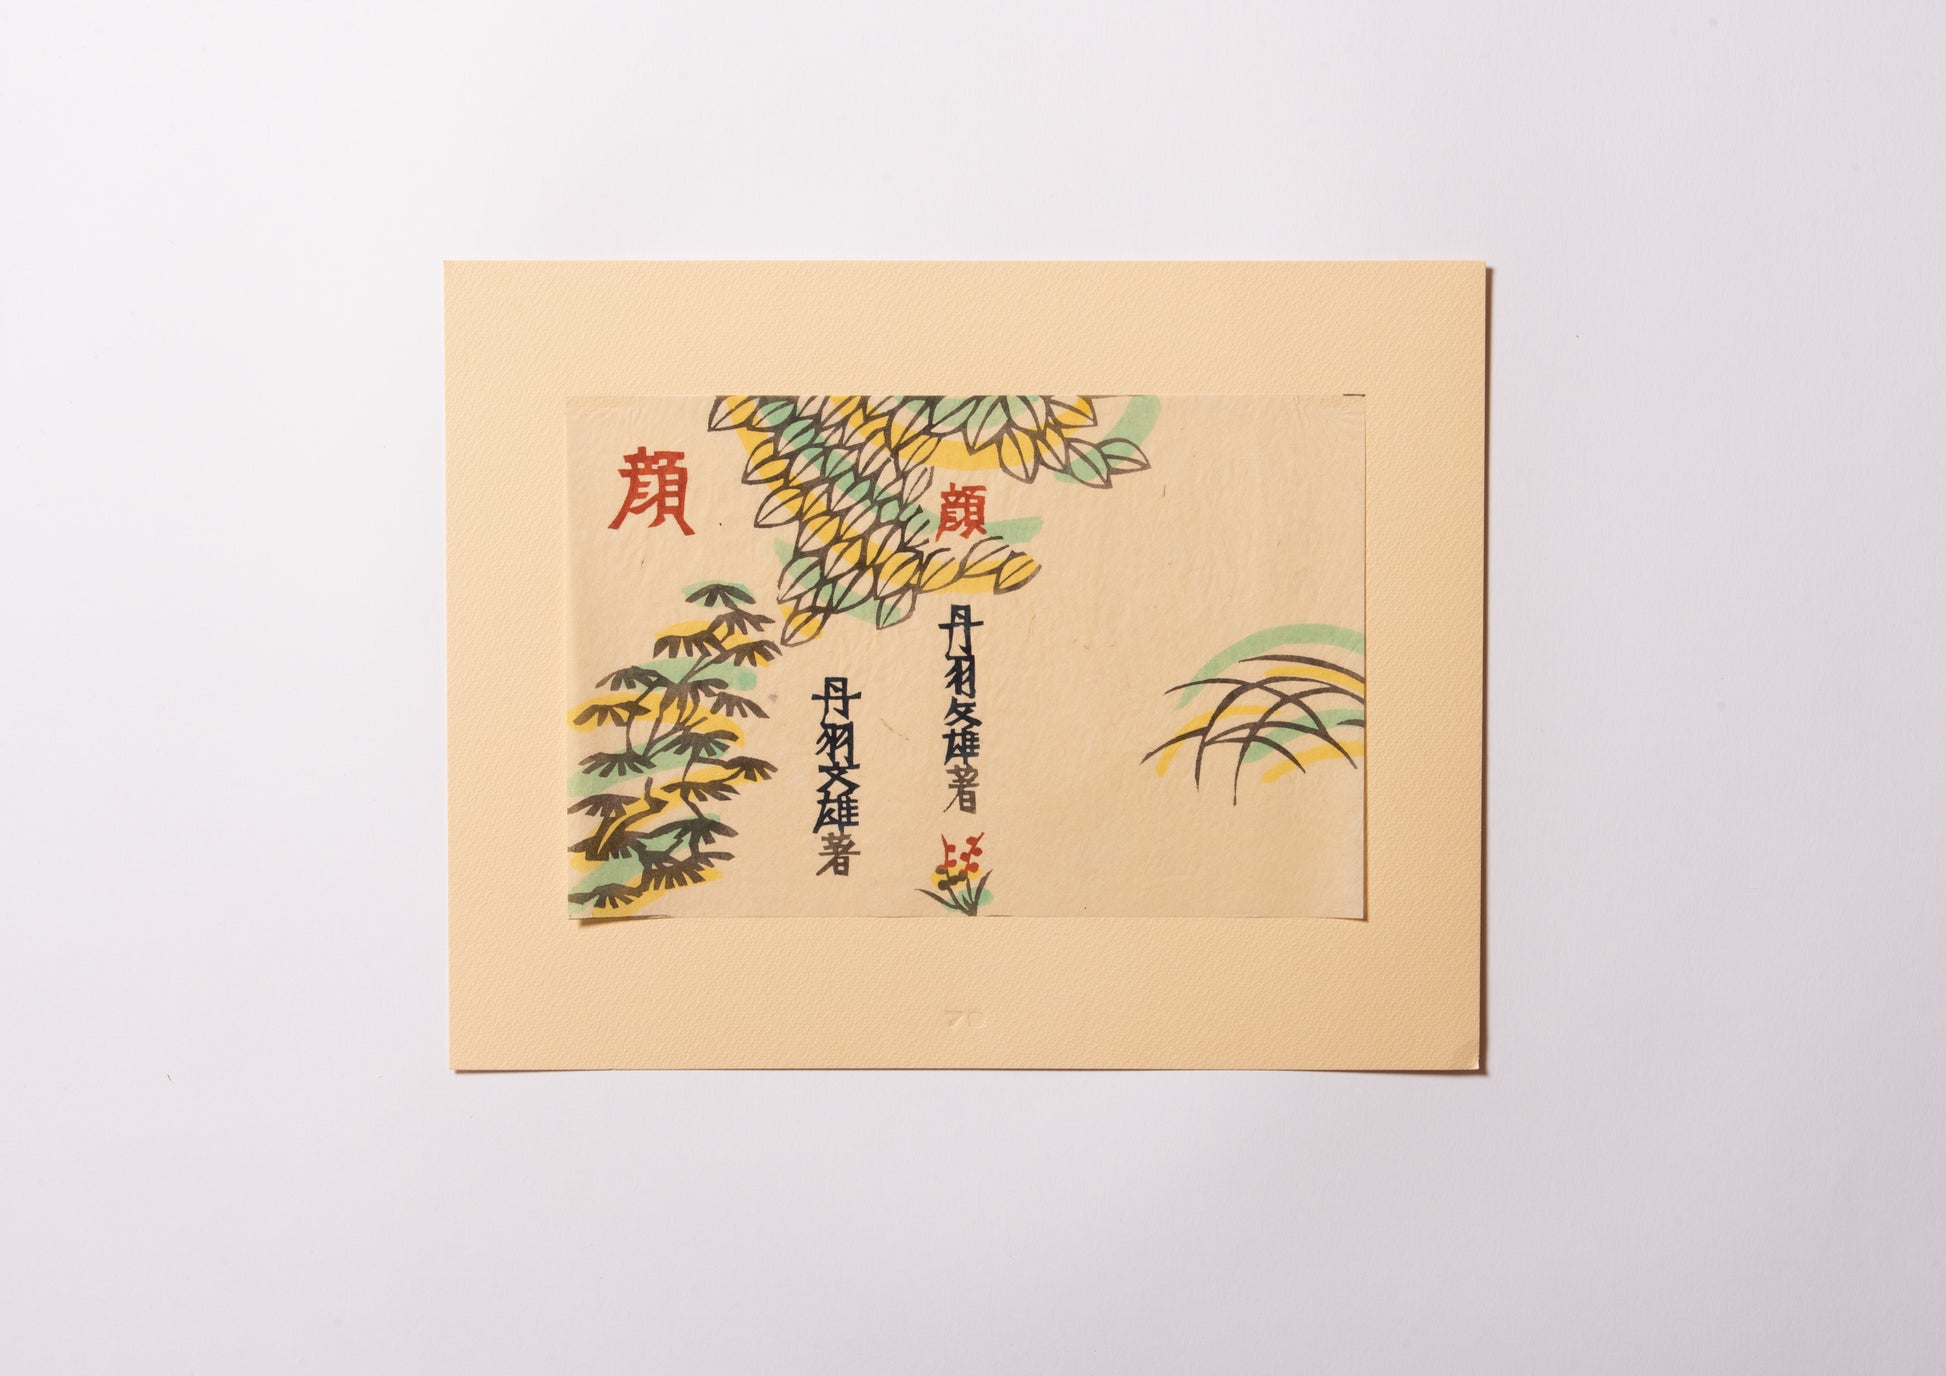 顔
丹羽文雄著
顔
丹羽文雄著
70